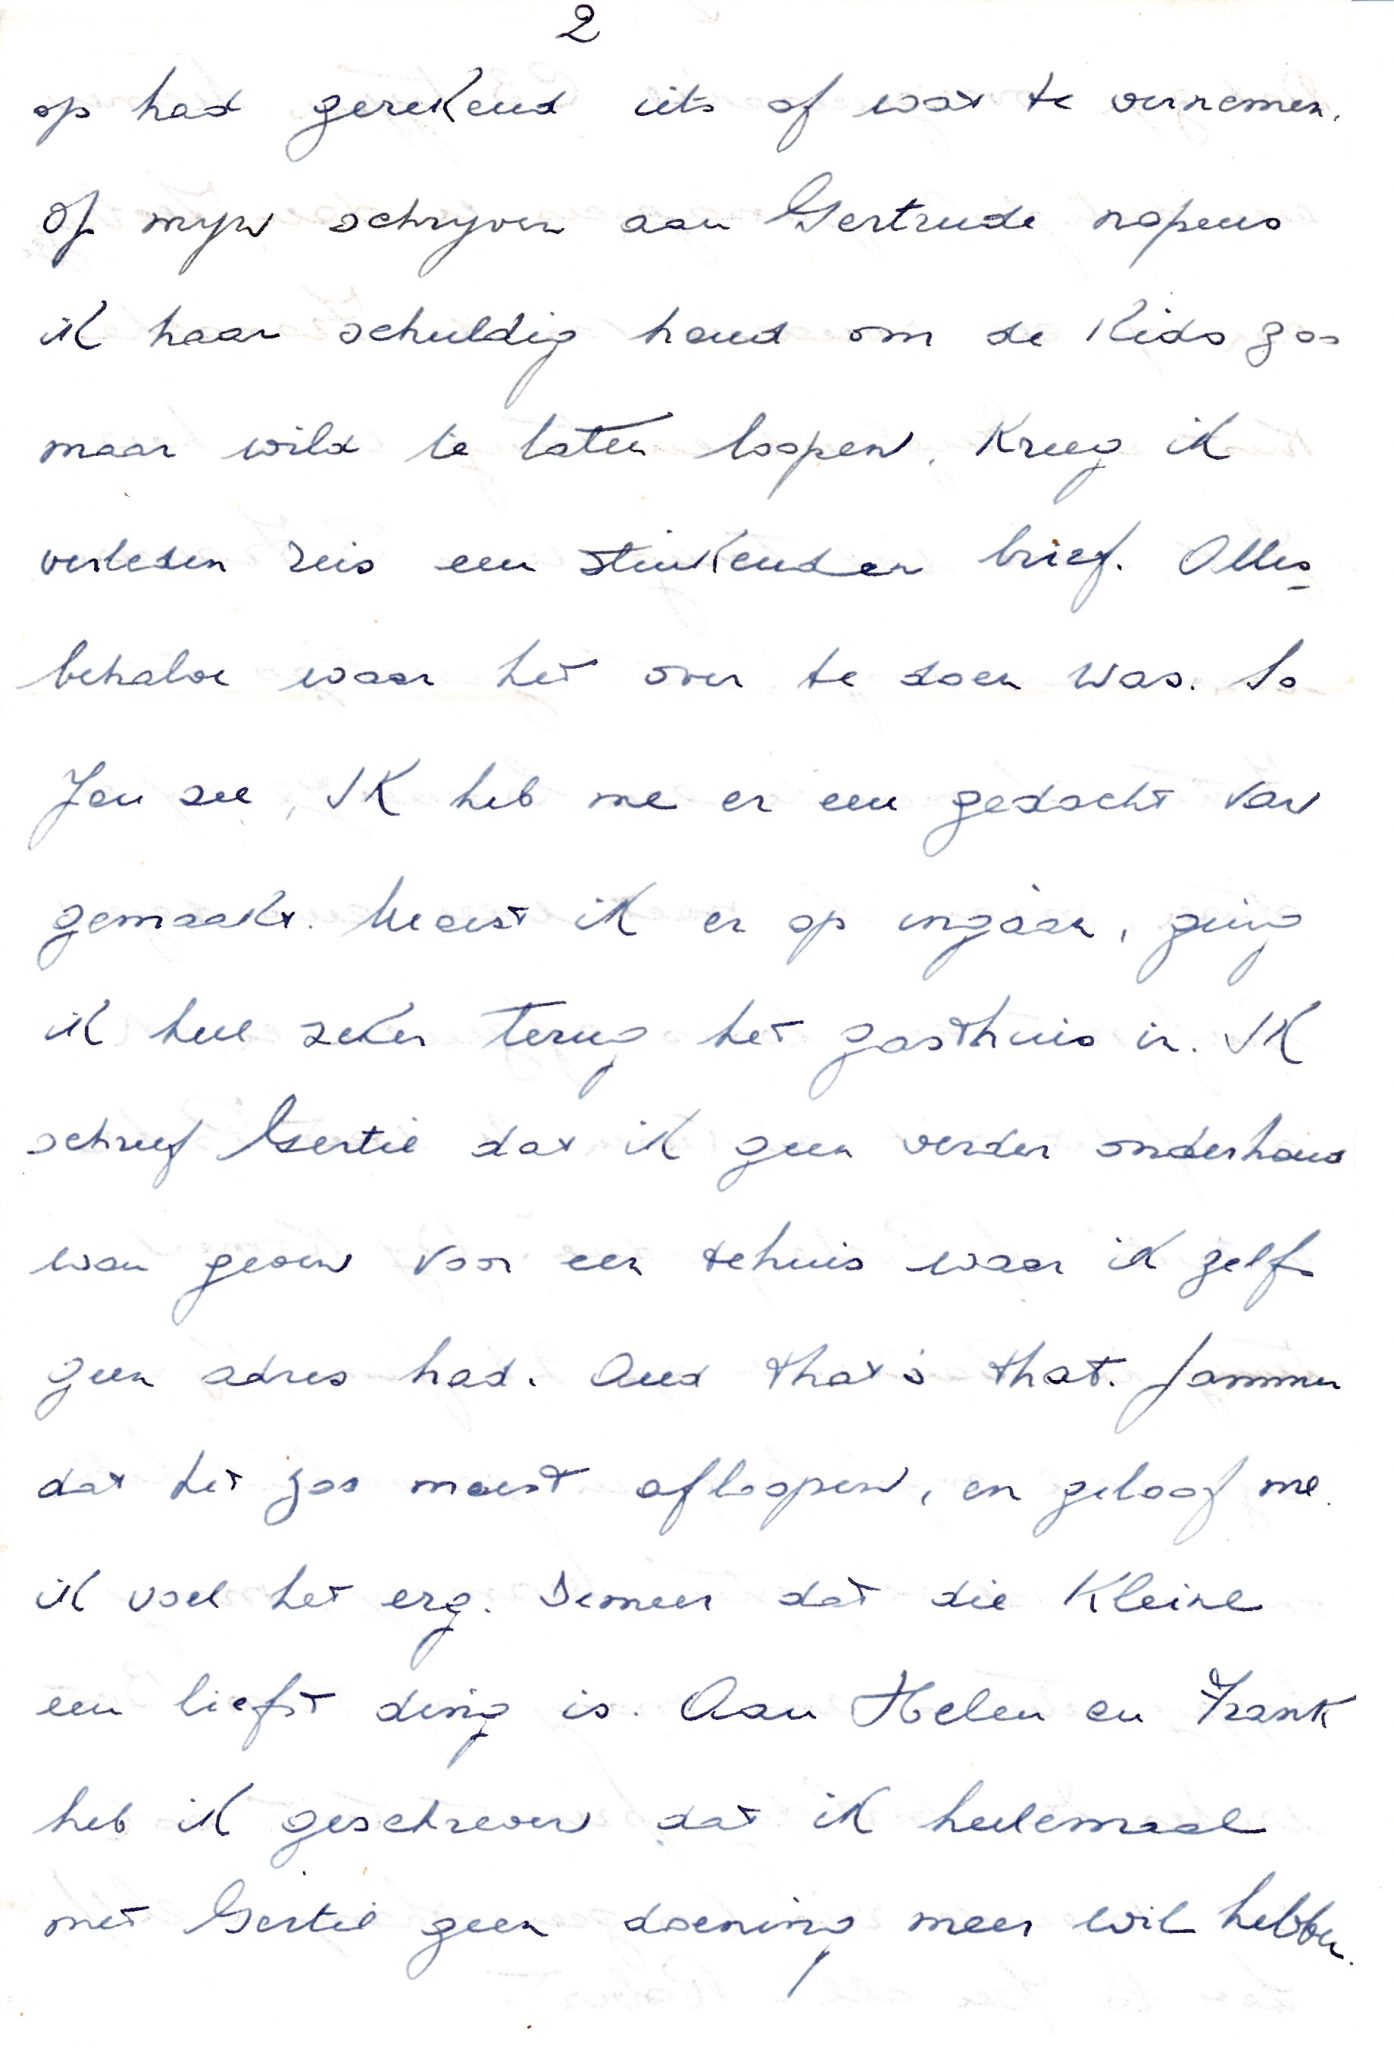 2
op had gerekend iets of wat te vernemen.
Of myn schryven aan Gertrude nopens
ik haar schuldig houd om de Kids zoo
maar wild te laten loopen. Kreeg ik
verleden reis een stinkenden brief. Alles
behalve waar het over te doen was. So
You see, IK heb me er een gedacht van
gemaakt. Moest ik er op ingaan, ging
ik heel zeker terug het gasthuis in. IK
schreef Gertie dat ik geen verder onderhoud
wou geven voor een tehuis waar ik zelfs
geen adres had. And that's that. Jammer
dat het zoo moest afloopen, en geloof me
ik voel het erg. Demeer dat die Kleine
een liefst ding is. Aan Helen en Frank
heb ik geschreven dat ik heelemaal
met Gertie geen doening meer wil hebben.